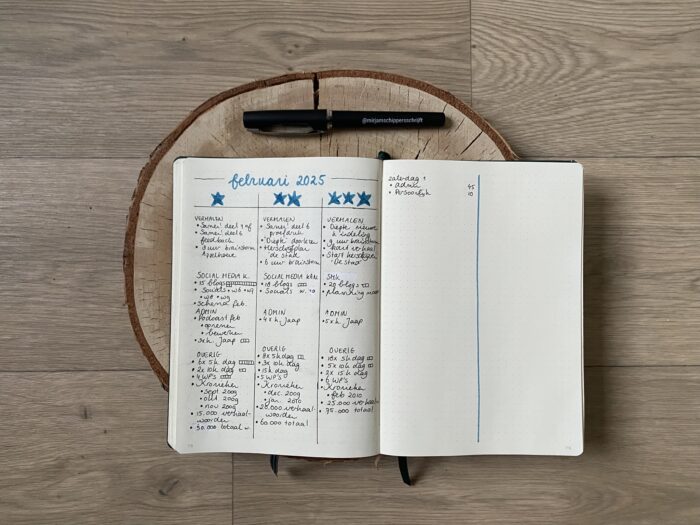 @mirjamschippersschrijft
februari 2025
VERHALEN
• Samei deel 4 af
• Samei deel 5
feedback
• 3 uur brainstorm
Apotheose
SOCIAL MEDIA K.
• 15 blogs
• Socials • w6 • w7
• w8 • w9
• Schema feb.
ADMIN
• Podcast feb
• opnemen
• bewerken
• 3x k. Jaap
OVERIG
• 6x 5k dag
• 2x 10k dag
• 4 WP's
• Kronieken
• sept 2009
• okt 2009
• nov 2009
• 15.000 verhaal-
woorden
• 50.000 totaal
VERHALEN
• Samei deel 6
proefdruk
• Diepte doorlezen
• Herschrijfplan
de stad
• 6 uur brainstorm
SOCIAL MEDIA
• 18 blogs
• Socials w. 10
ADMIN
• 4x k. Jaap
OVERIG
• 8x 5k dag
• 3x 10k dag
• 15k dag
• 5 WP's
• Kronieken
• dec. 2009
• jan. 2010
• 20.000 verhaal-
woorden
• 60.000 totaal
VERHALEN
• Diepte nieuwe
h indeling
• 9 uur brainstorm
• Kort verhaal
• Start herschrijven
'De stad'
• 20 blogs
• planning
ADMIN
• 5x k. Jaap
OVERIG
• 10x 5k dag
• 5x 10k dag
• 2x 15k dag
• 6 WP's
• Kronieken
• feb 2010
• 25.000 verhaal
• 75.000 totaal
zaterdag 1
• admin 45
• Persoonlijk 10